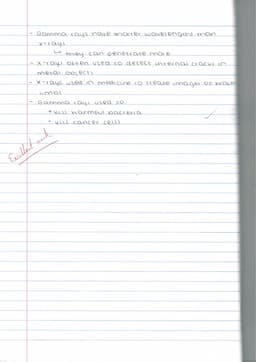 - Gamma rays have shorter wavelengths than
x-rays
↳ they can penetrate more
- x-rays often used to detect internal cracks in
metal objects
- x-rays used in medicine to create images of broken
limbs
- Gamma rays used to
* kill harmful bacteria
* kill cancer cells
Excellent work